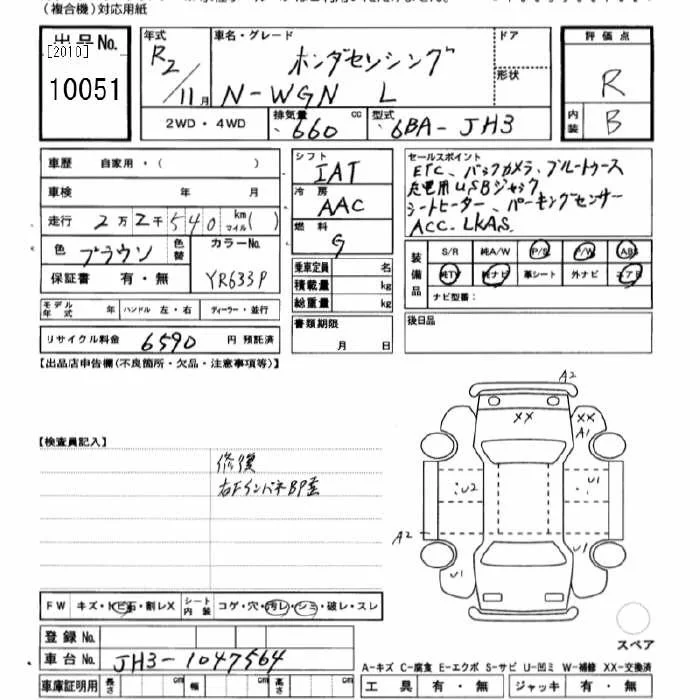 (複合機)対応用紙
出品No.
[2010]
10051
年式
R2/11月
車名・グレード
ホンダセンシング
N-WGN L
ドア
形状
2WD・4WD
排気量 660 cc
型式 6BA-JH3
評価点
R
内装 B
車歴 自家用・( )
車検 年 月
走行 2万2千540 km マイル( )
色 ブラウン 色替 カラーNo. YR633P
保証書 有・無
モデル年式 年 ハンドル 左・右 ディーラー・並行
リサイクル料金 6590 円 預託済
シフト IAT
冷房 AAC
燃料 G
乗車定員 名
積載量 kg
総重量 kg
書類期限
月 日
セールスポイント
ETC、バックカメラ、ブルートゥース
充電用USBジャック
シートヒーター、パーキングセンサー
ACC、LKAS
装備品
S/R 純A/W P/S P/W ABS
純TV 純ナビ 革シート 外ナビ エアB
ナビ型番:
後日品
【出品店申告欄(不良箇所・欠品・注意事項等)】
【検査員記入】
修復
右Fインパネ BP歪
A2
XX
XX
A1
U2
U1
A2
U1
U1
スペア
FW キズ・トビ石・割レX シート内装 コゲ・穴・汚レ・シミ・破レ・スレ
登録No.
車台No. JH3-1047564
車庫証明用 長さ cm 幅 cm 高さ cm
A-キズ C-腐食 E-エクボ S-サビ U-凹ミ W-補修 XX-交換済
工具 有・無 ジャッキ 有・無